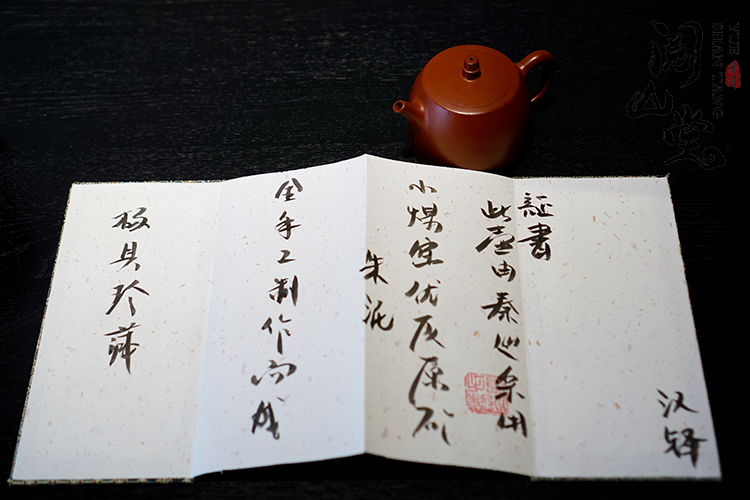 汉铎
証書
此壶由秦 用
小煤窑优质原矿
朱泥
全手工制作而成
极具珍藏
阅山堂
YUE
SHAN TANG